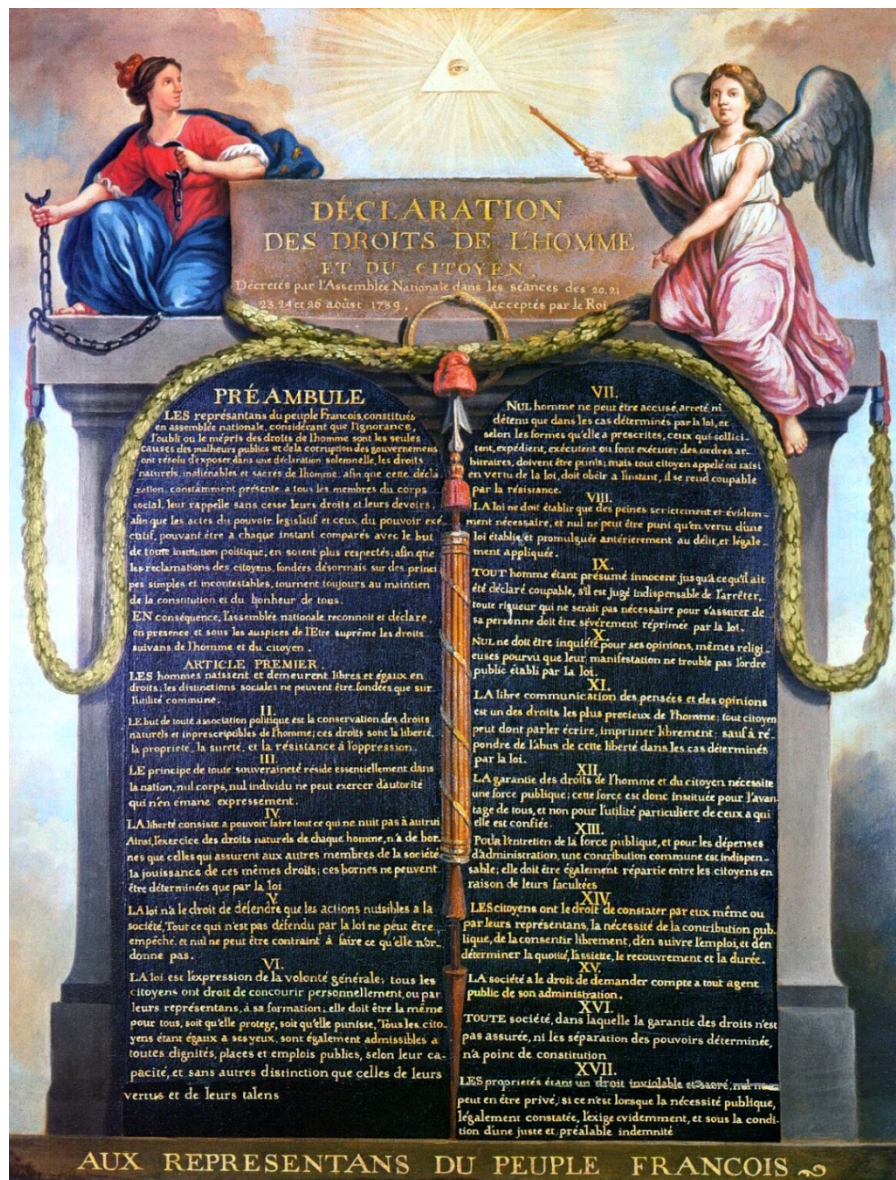 DÉCLARATION
DES DROITS DE L'HOMME
ET DU CITOYEN,
Décretés par l'Assemblée Nationale dans les séances des 20, 21
23, 24 et 26 aoûst 1789, acceptés par le Roi
PRÉAMBULE
LES représantans du peuple François, constitués
en assemblée nationale, considérant que l'ignorance,
l'oubli ou le mépris des droits de l'homme sont les seules
causes des malheurs publics et de la corruption des gouvernemens
ont résolu d'exposer dans une déclaration solemnelle, les droits
naturels, inaliénables et sacrés de l'homme; afin que cette décla
ration, constamment présente a tous les membres du corps
social, leur rappelle sans cesse leurs droits et leurs devoirs,
afin que les actes du pouvoir legislatif et ceux du pouvoir exé
cutif, pouvant être a chaque instant comparés avec le but
de toute institution politique, en soient plus respectés; afin que
les reclamations des citoyens, fondées désormais sur des princi
pes simples et incontestables, tournent toujours au maintien
de la constitution et du bonheur de tous.
EN conséquence, l'assemblée nationale reconnoit et déclare,
en presence et sous les auspices de l'Etre suprême les droits
suivans de l'homme et du citoyen.
ARTICLE PREMIER.
LES hommes naissent et demeurent libres et égaux en
droits. les distinctions sociales ne peuvent être fondées que sur
l'utilité commune.
II.
LE but de toute association politique est la conservation des droits
naturels et inprescripibles de l'homme; ces droits sont la liberté,
la propriété, la sureté, et la résistance à l'oppression.
III.
LE principe de toute souveraineté réside essentiellement dans
la nation, nul corps, nul individu ne peut exercer d'autorité
qui n'en émane expressement.
IV.
LA liberté consiste a pouvoir faire tout ce qui ne nuit pas à autrui
Ainsi, l'exercice des droits naturels de chaque homme, n'a de bor-
nes que celles qui assurent aux autres membres de la société
la jouissance de ces mêmes droits; ces bornes ne peuvent
être déterminées que par la loi
V.
LA loi n'a le droit de défendre que les actions nuisibles a la
société. Tout ce qui n'est pas défendu par la loi ne peut être
empêché, et nul ne peut être contraint à faire ce qu'elle n'or-
donne pas.
VI.
LA loi est l'expression de la volonté générale; tous les
citoyens ont droit de concourir personnellement, ou par
leurs représentans, à sa formation; elle doit être la même
pour tous, soit qu'elle protege, soit qu'elle punisse, Tous les cito-
yens étant égaux à ses yeux, sont également admissibles a
toutes dignités, places et emplois publics, selon leur ca-
pacité, et sans autres distinction que celles de leurs
vertus et de leurs talens
VII.
NUL homme ne peut être accusé, arreté, ni
détenu que dans les cas déterminés par la loi, et
selon les formes qu'elle a prescrites, ceux qui sollici-
tent, expédient, exécutent ou font exécuter des ordres ar-
bitraires, doivent être punis; mais tout citoyen appelé ou saisi
en vertu de la loi, doit obéir a l'instant, il se rend coupable
par la résistance.
VIII.
LA loi ne doit établir que des peines strictement et évidem-
ment nécessaire, et nul ne peut être puni qu'en vertu d'une
loi établie, et promulguée antérierement au délit, et légale-
ment appliquée.
IX.
TOUT homme étant présumé innocent jusqu'à ce qu'il ait
été déclaré coupable, s'il est jugé indispensable de l'arrêter,
toute rigueur qui ne serait pas nécessaire pour s'assurer de
sa personne doit être sévèrement réprimée par la loi.
X.
NUL ne doit être inquiété pour ses opinions, mêmes religi-
euses pourvu que leur manifestation ne trouble pas l'ordre
public établi par la loi.
XI.
LA libre communication des pensées et des opinions
est un des droits les plus precieux de l'homme; tout citoyen
peut donc parler écrire, imprimer librement; sauf à ré-
pondre de l'abus de cette liberté dans les cas déterminés
par la loi.
XII.
LA garantie des droits de l'homme et du citoyen nécessite
une force publique; cette force est donc instituée pour l'avan-
tage de tous, et non pour l'utilité particuliere de ceux a qui
elle est confiée.
XIII.
Pour l'entretien de la force publique, et pour les dépenses
d'administration, une contribution commune est indispen-
sable; elle doit être également répartie entre les citoyens en
raison de leurs facultées
XIV.
LES citoyens ont le droit de constater par eux même ou
par leurs représentans, la nécessité de la contribution pub-
lique, de la consentir librement, d'en suivre l'emploi, et d'en
déterminer la quotité, l'assiette, le recouvrement et la durée.
XV.
LA société a le droit de demander compte a tout agent
public de son administration.
XVI.
TOUTE société, dans laquelle la garantie des droits n'est
pas assurée, ni les séparation des pouvoirs déterminée,
n'a point de constitution
XVII.
LES proprietés étant un droit inviolable et sacré, nul ne
peut en être privé, si ce n'est lorsque la nécessité publique,
légalement constatée, l'exige evidemment, et sous la condi-
tion d'une juste et préalable indemnité
AUX REPRESENTANS DU PEUPLE FRANCOIS